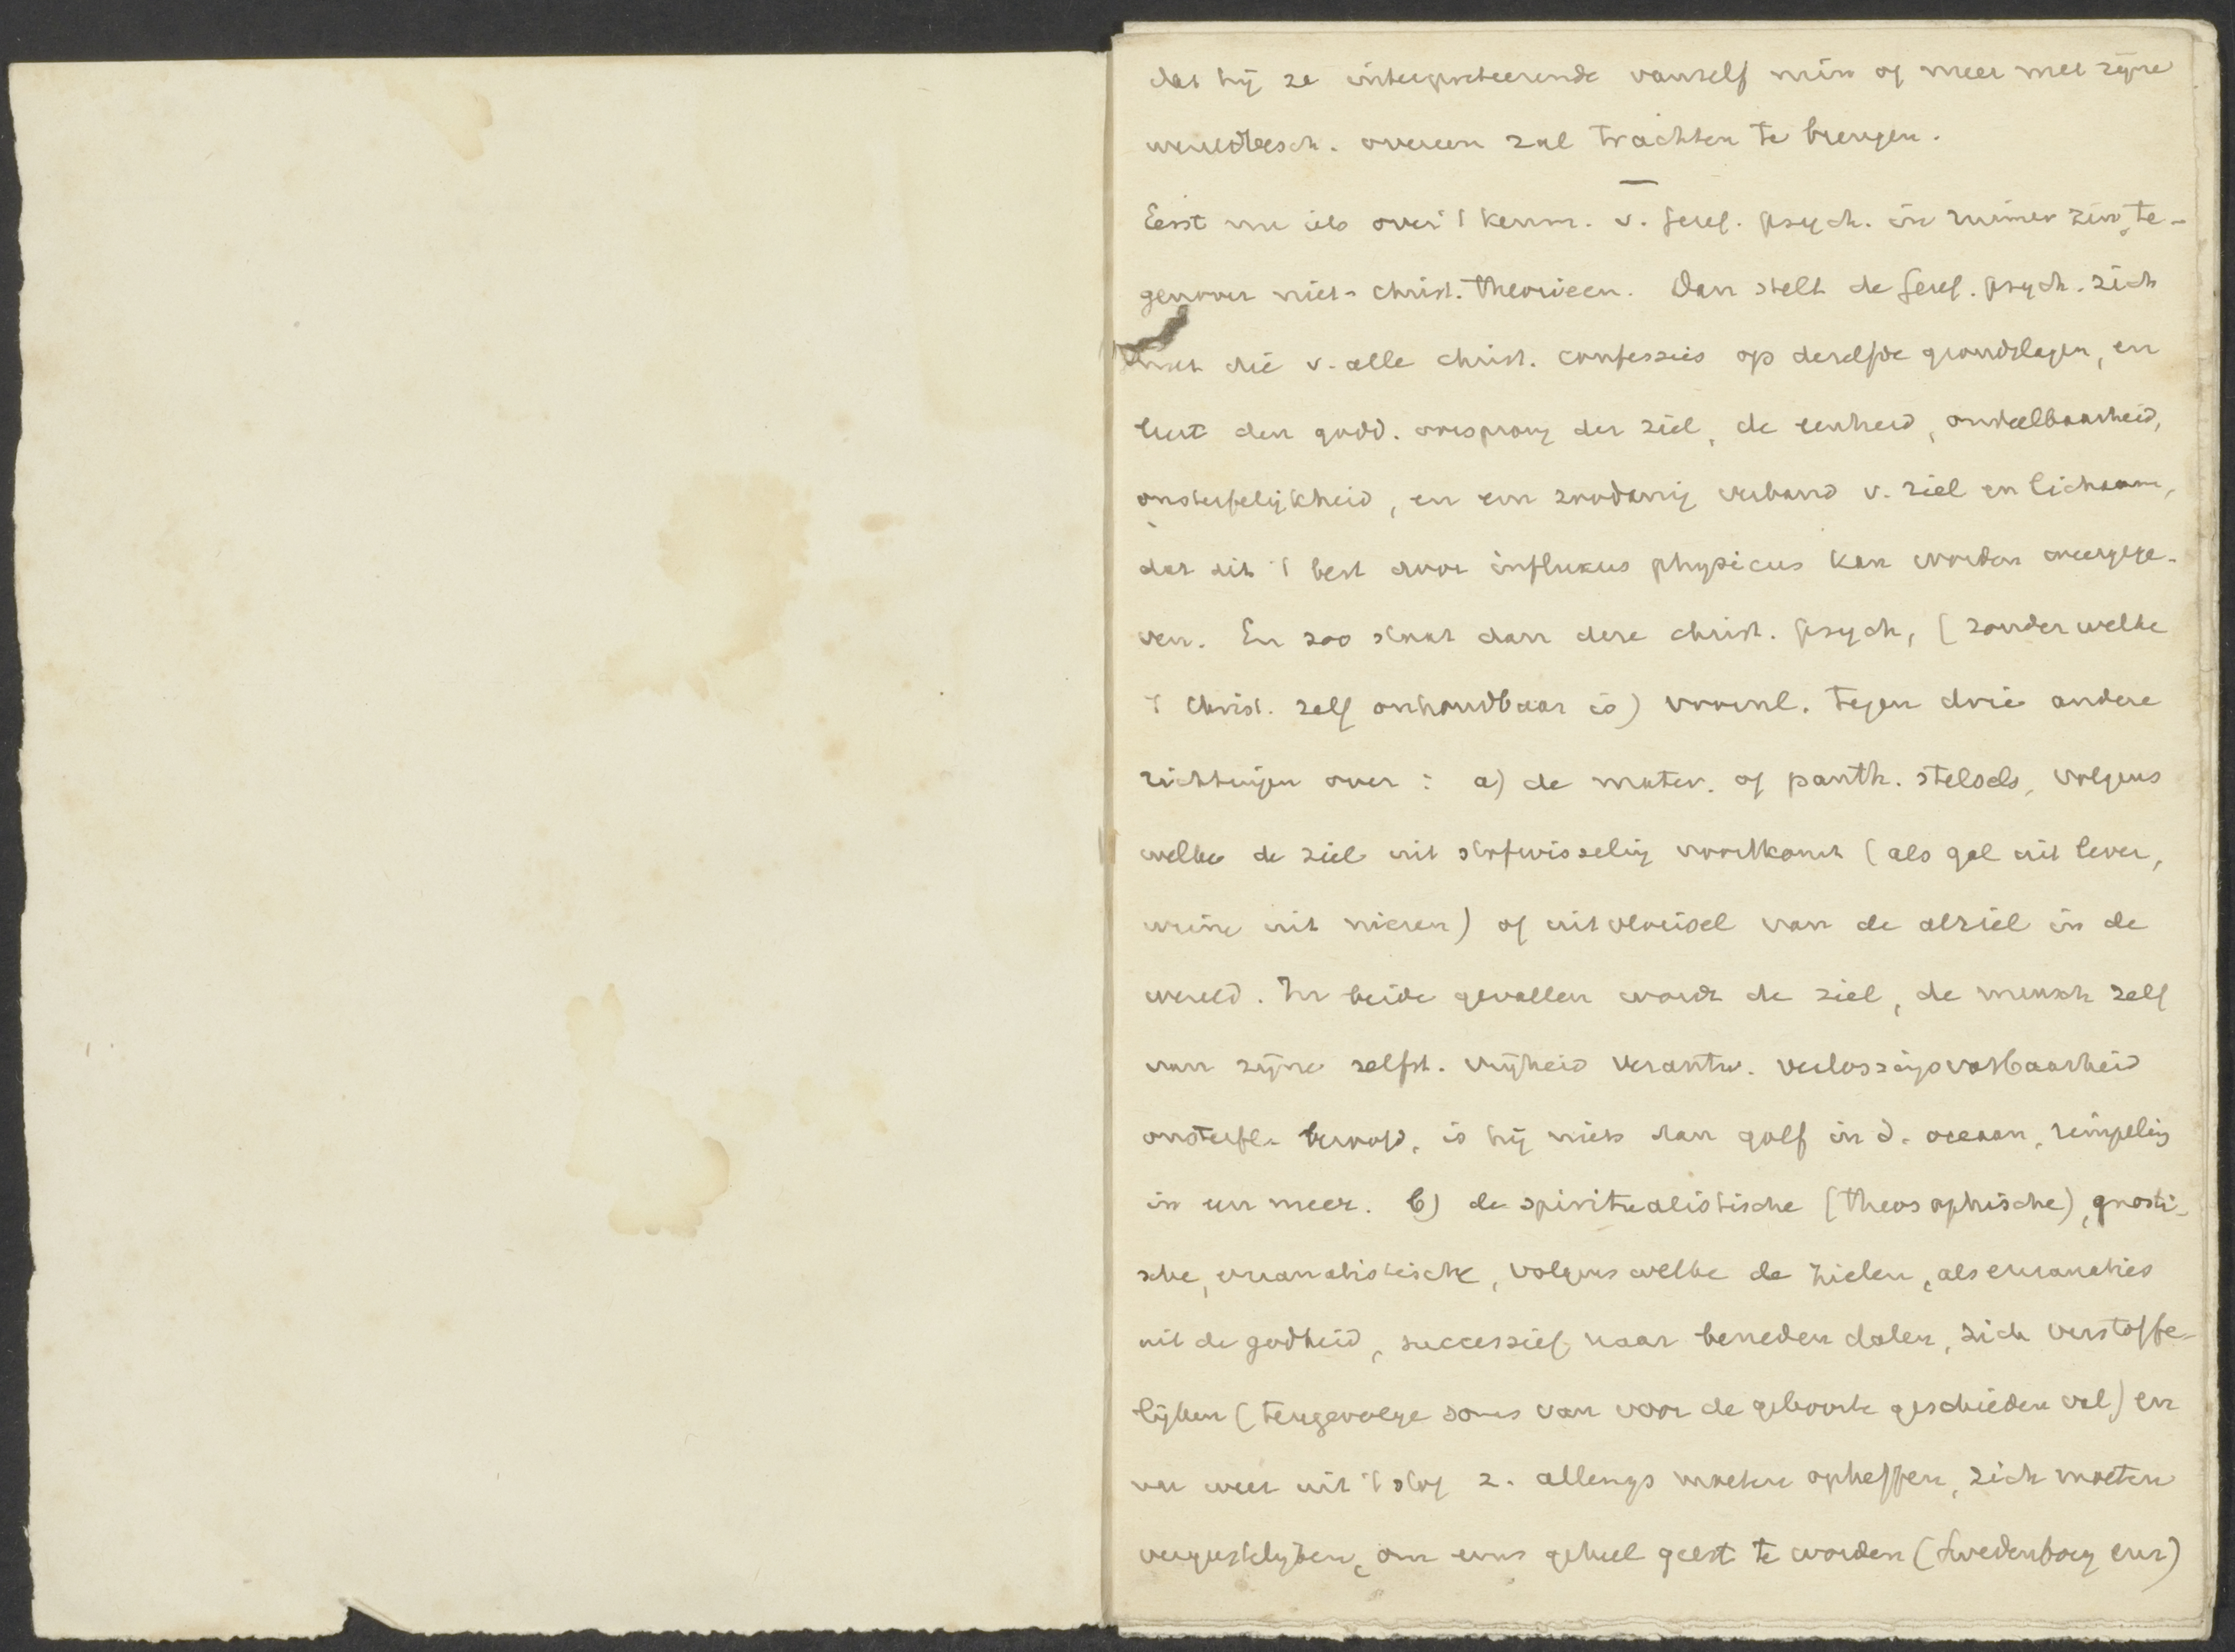 dat hij ze interpreteerende vanzelf min of meer met zijne
wereldbesch. overeen zal trachten te brengen.
—
Eerst nu iets over 't kenm. v. geref. psych. in ruimer zin, te-
genover niet-christ. theorieen. Dan stelt de geref. psych. zich
met die v. alle christ. confessies op dezelfde grondslagen, en
leert den godd. oorsprong der ziel, de eenheid, ondeelbaarheid,
onsterfelijkheid, en een zoodanig verband v. ziel en lichaam,
dat dit 't best door influxus physicus kan worden weergege-
ven. En zoo staat dan deze christ. psych, (zonder welke
't Christ. zelf onhoudbaar is) voornl. tegen drie andere
richtingen over: a) de mater. of panth. stelsels, volgens
welke de ziel uit stofwisseling voortkomt (als gal uit lever,
urine uit nieren) of uitvloeisel van de alziel in de
wereld. In beide gevallen wordt de ziel, de mensch zelf
van zijne zelfst. vrijheid verantw. verlossingsvatbaarheid
onsterfl. beroofd, is hij niets dan golf in d. oceaan, rimpeling
in een meer. b) de spiritualistische (theosophische), gnosti-
sche, emanatistische, volgens welke de zielen, als emanaties
uit de godheid, successief naar beneden dalen, zich verstoffe-
lijken (tengevolge soms van voor de geboorte geschieden val) en
nu weer uit 't stof z. allengs moeten opheffen, zich moeten
vergeestelijken, om eens geheel geest te worden (Swedenborg enz)